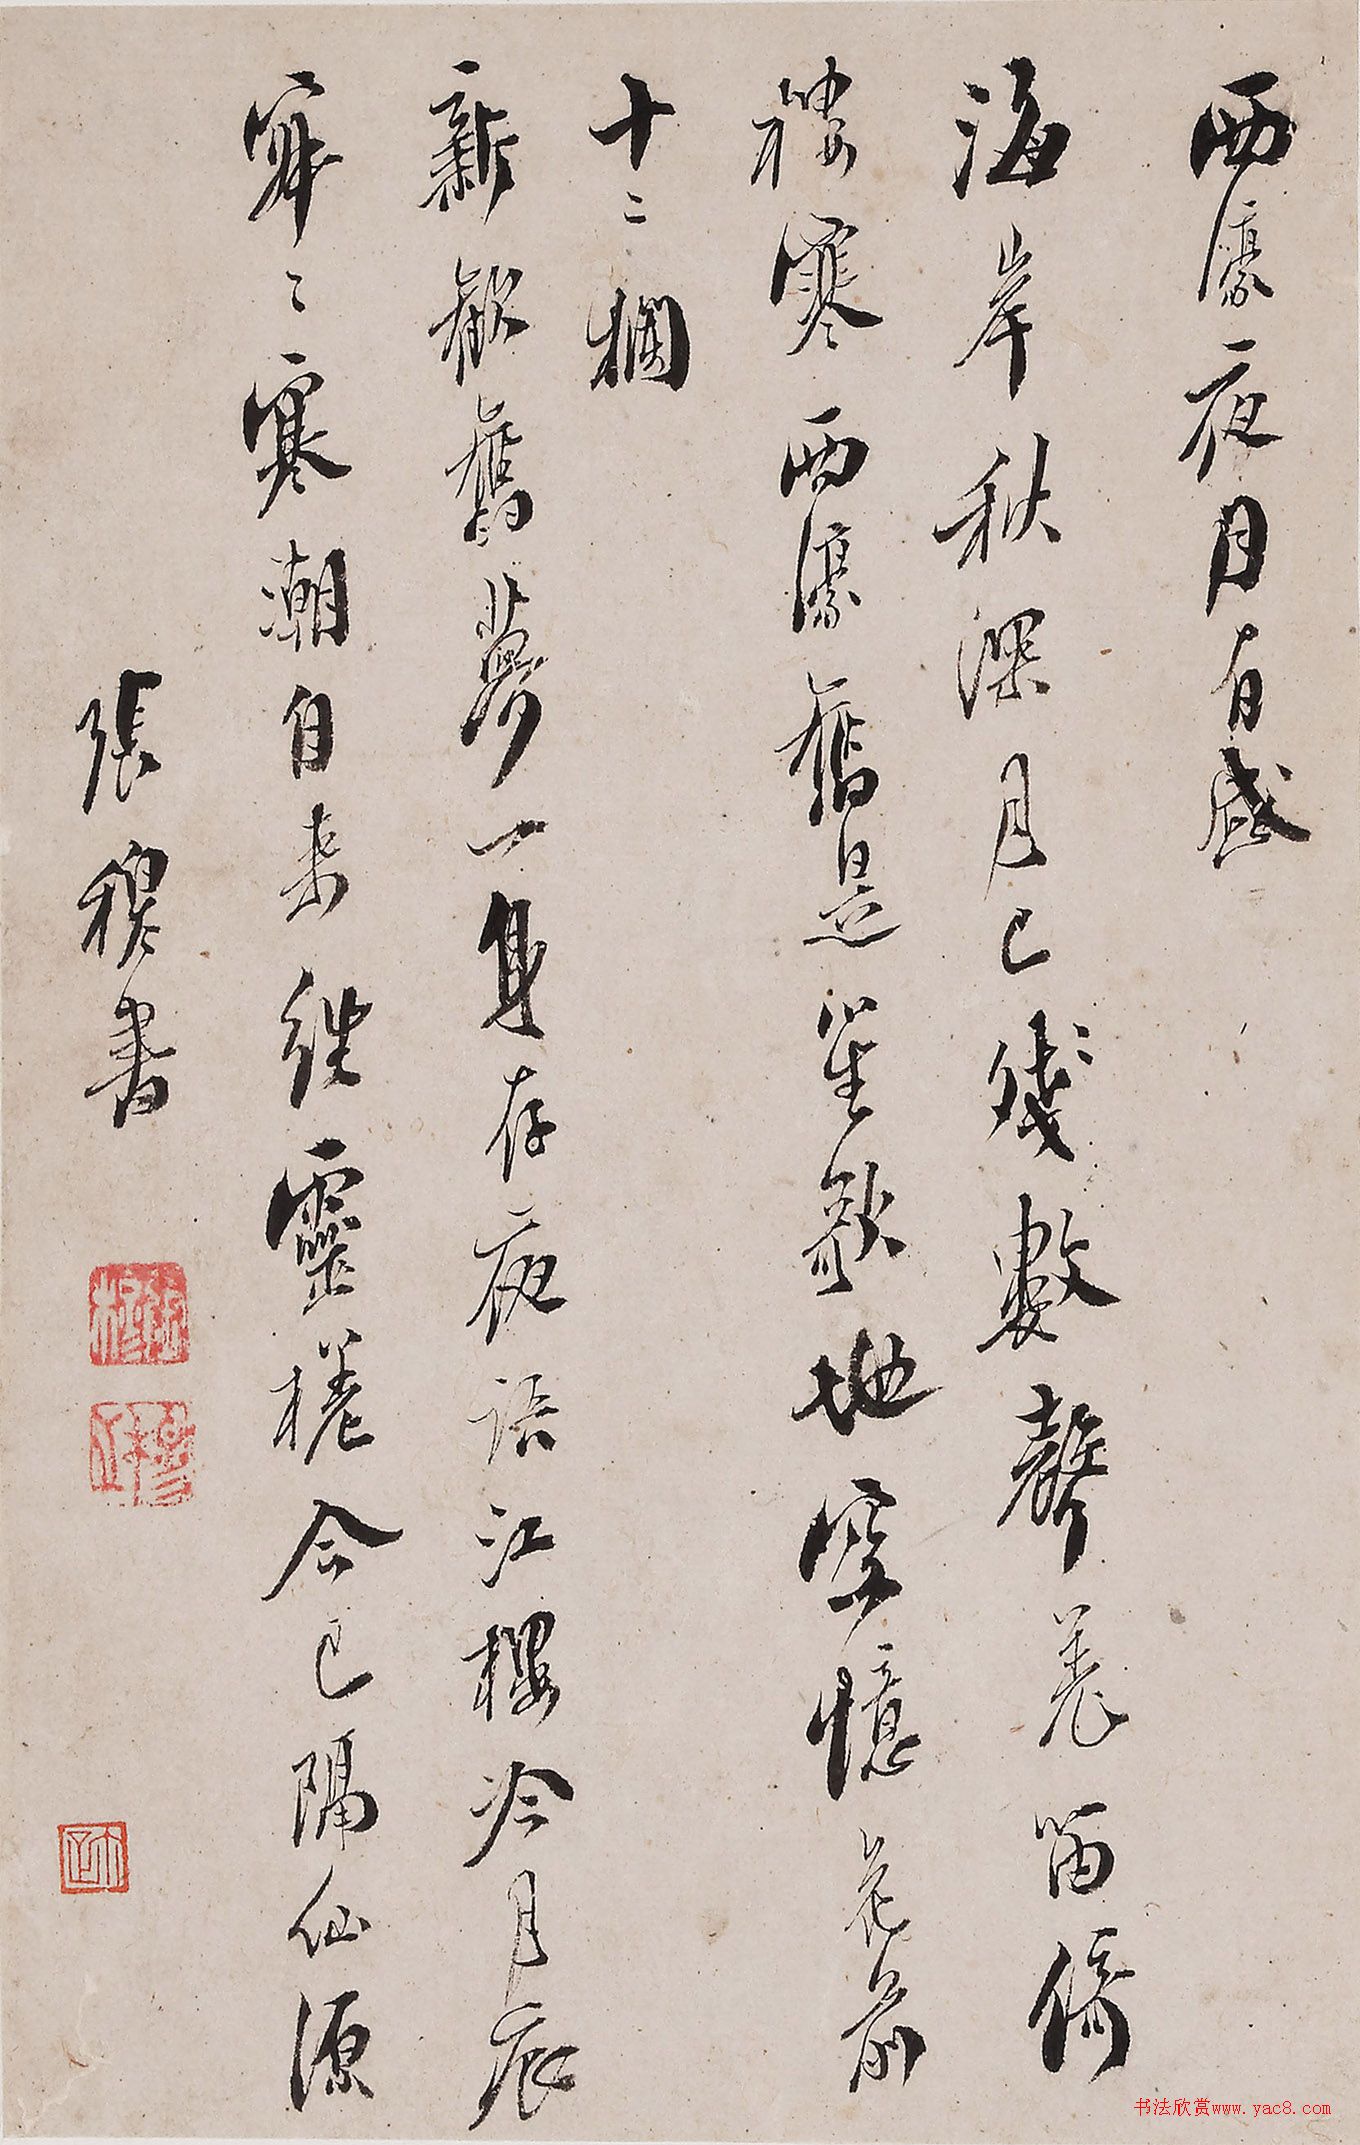 西濠夜月有感
海岸秋深月已殘數聲羌笛倚
樓寒西濠舊是笙歌地空憶花前
十二欄
新歡舊夢一身存夜語江樓冷月痕
寂〻寒潮自來往靈槎今已隔仙源
張穆書
书法欣赏www.yac8.com